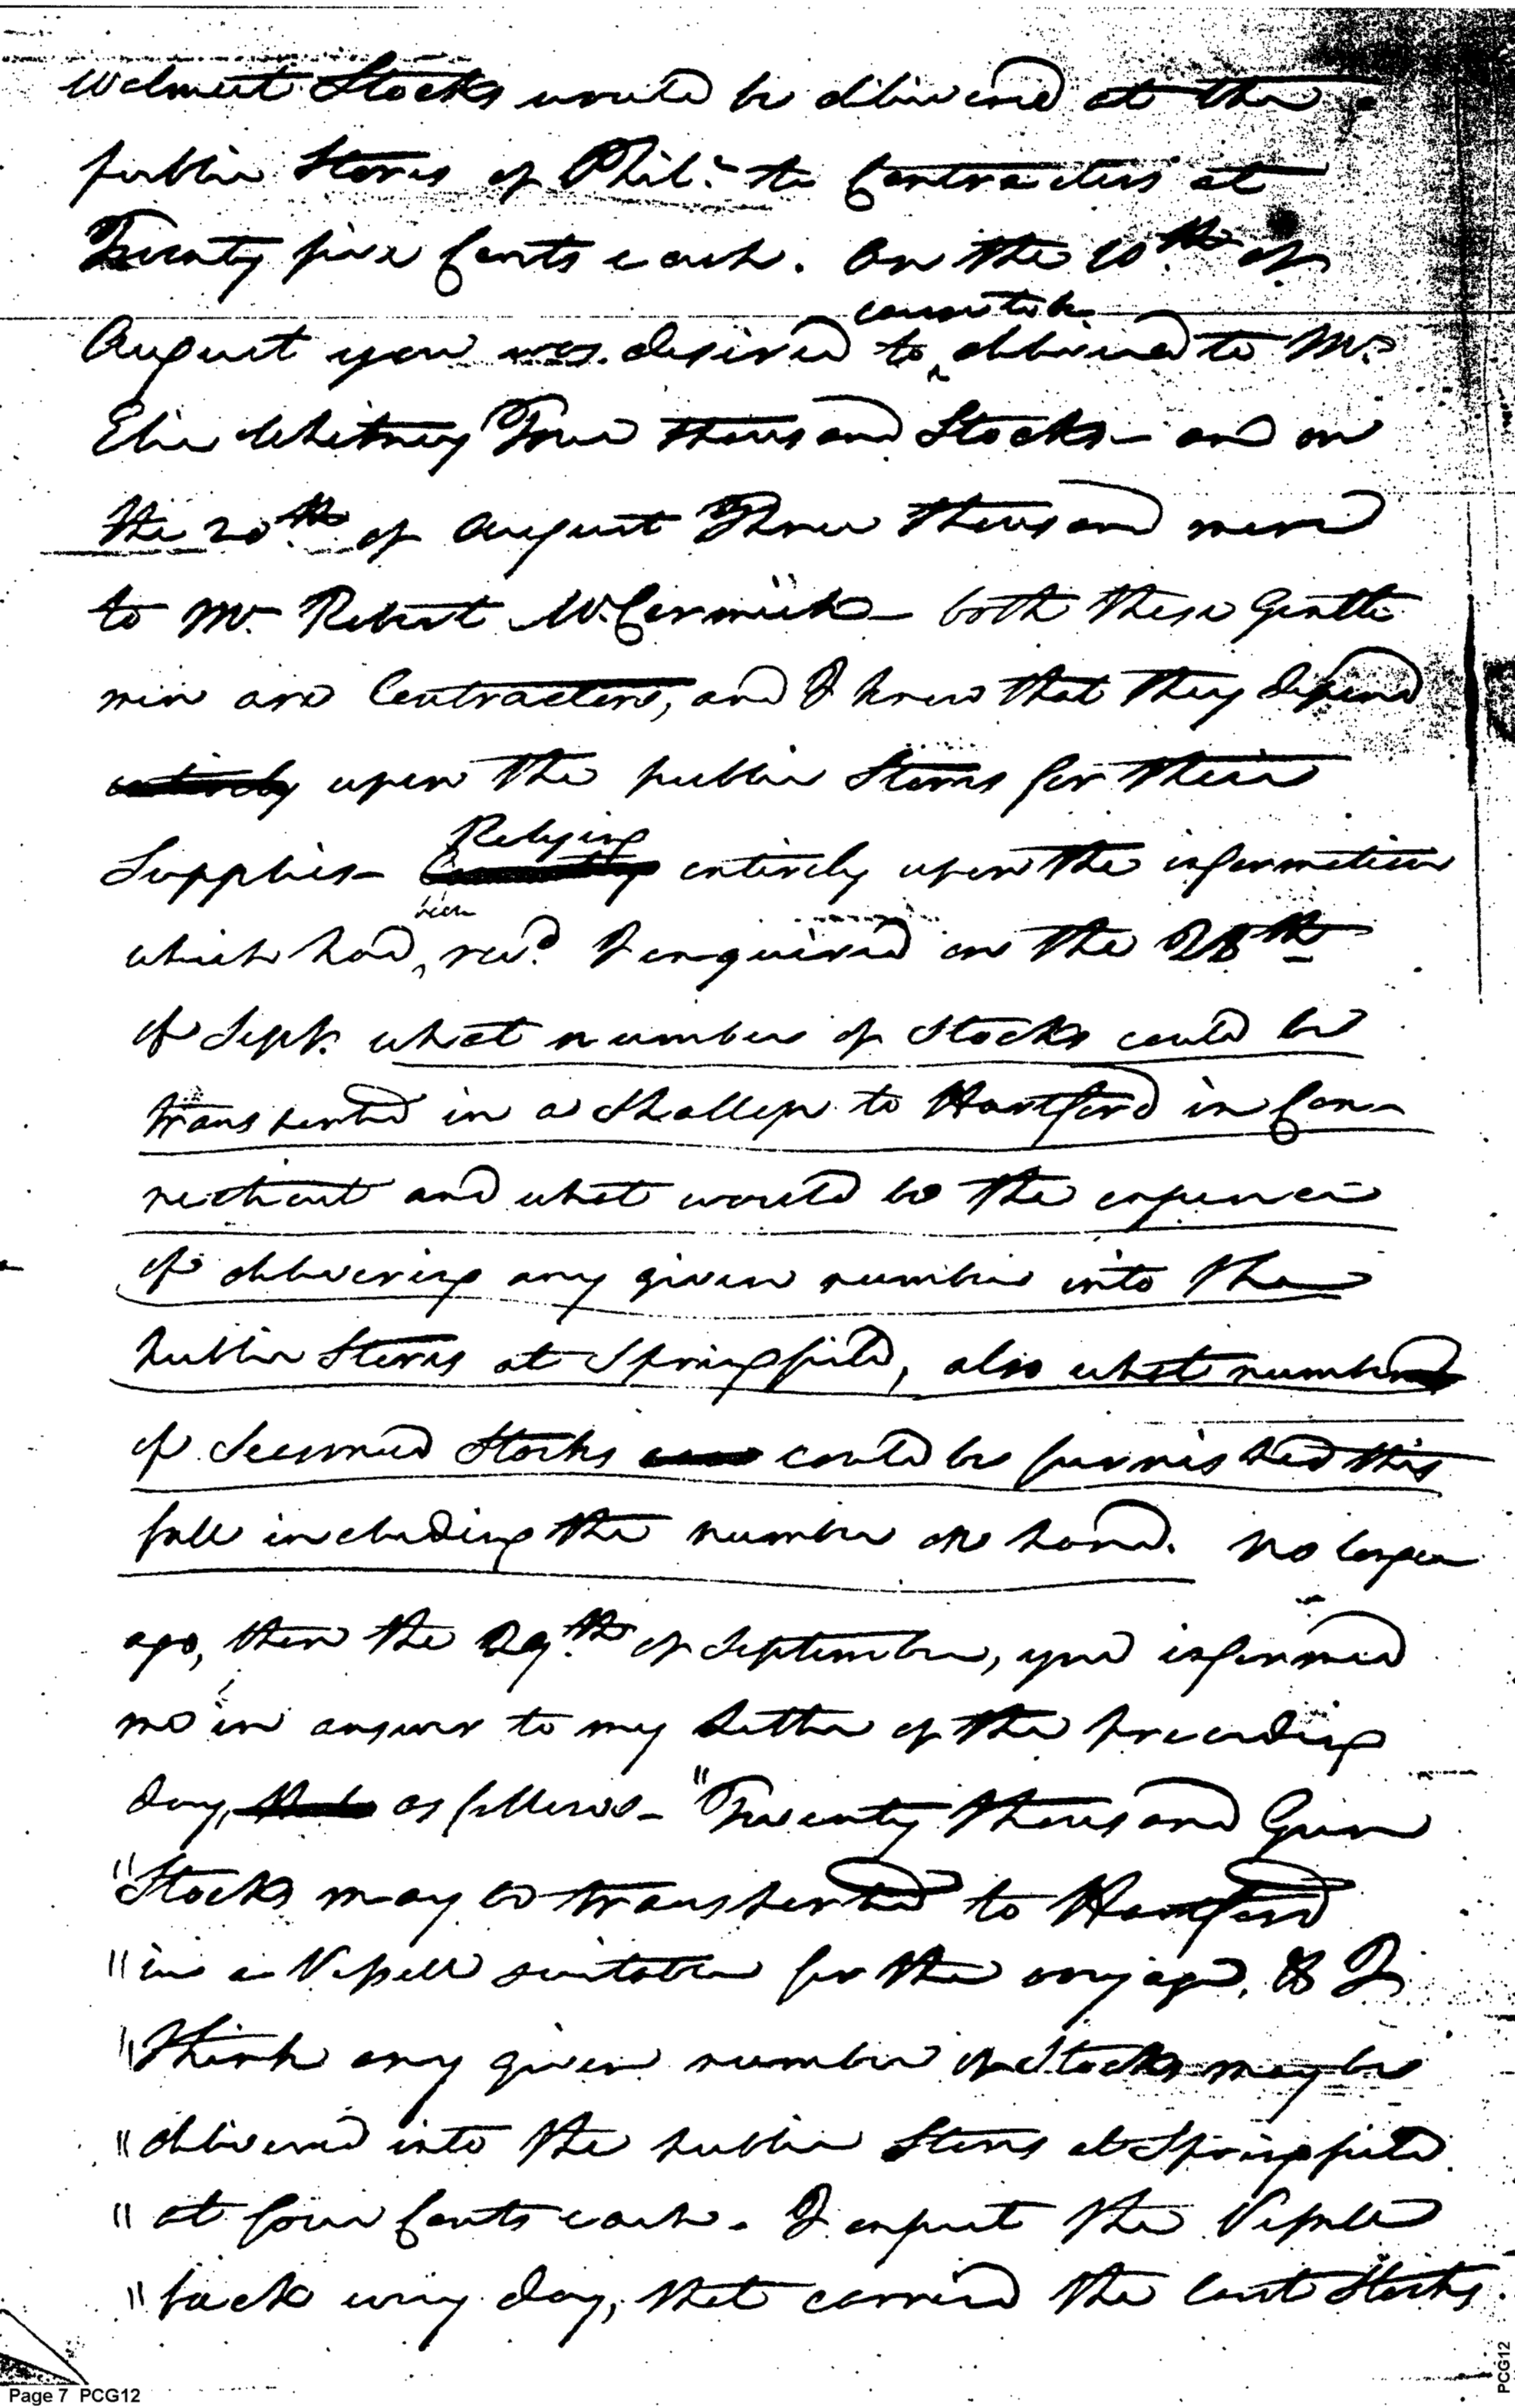 Walnut Stocks would be delivered at the
public Stores of Phil: to Contractors at
Twenty five Cents each. On the 10th of
cause to be
August you was desired to delivered to Mr
Elie Whitney Four thousand Stocks - and on
the 20th of August Three thousand more
to Mr. Robert McCormick - both these Gentle
men are Contractors, and I knew that they depend
entirely upon the public Stores for their
Relying
Supplies - entirely upon the information
been
which had recd. I enquired on the 28th
of Sept. what number of Stocks could be
transported in a Shallop to Hartford in Con-
necticut and what would be the expence
of delivering any given number into the
public Stores at Springfield, also what number
of Seasoned Stocks could be furnished this
fall including the number on hand. No longer
ago, then the 29th of September, you informed
me in answer to my letter of the preceeding
day, as follows - "Twenty thousand Gun
"Stocks may be transported to Hartford
"in a Vessell suitable for the voyage, & I
"think any given number of Stocks may be
"delivered into the public Stores at Springfield
"at four Cents each. I expect the Vessell
"back every day, that carried the last Stocks
Page 7 PCG12
PCG12